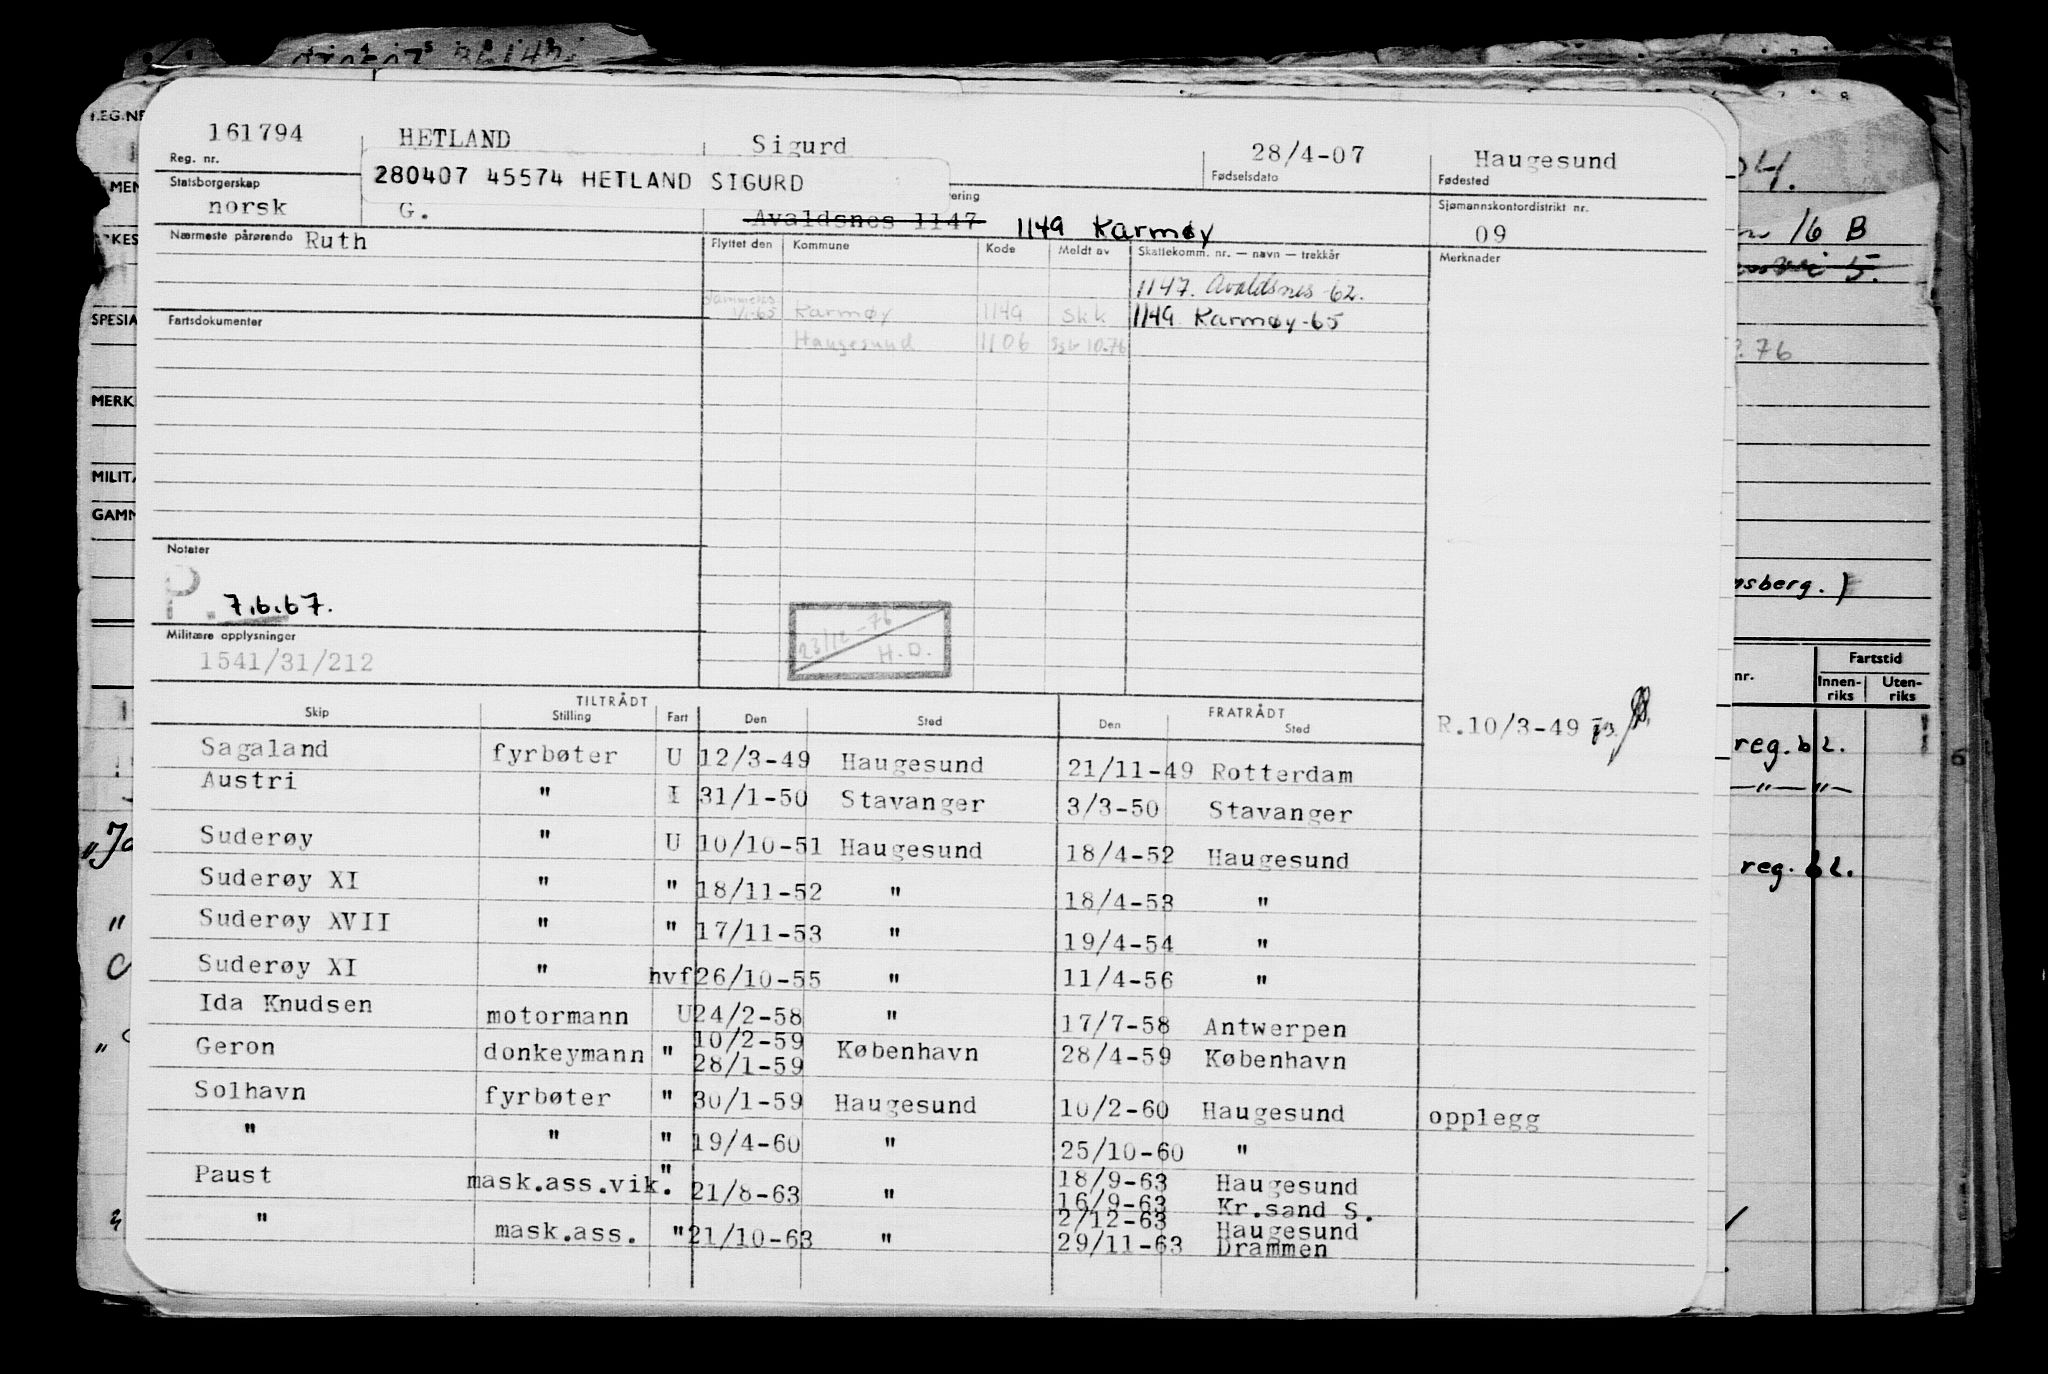 161794 HETLAND Sigurd 28/4-07 Haugesund
Reg. nr. Fødselsdato Fødested
280407 45574 HETLAND SIGURD
Statsborgerskap vering Sjømannskontordistrikt nr.
norsk G. Avaldsnes 1147 1149 Karmøy 09
Nærmeste pårørende Ruth Flyttet den Kommune Kode Meldt av Skattekomm. nr. — navn — trekkår Merknader
1147. Avaldsnes-62.
1/1-65 Karmøy 1149 Skk 1149 Karmøy-65
Fartsdokumenter
Haugesund 1106 10.76
Notater
P. 7.6.67.
23/12-76
H.D.
Militære opplysninger
1541/31/212
TILTRÅDT FRATRÅDT
Skip Stilling Fart Den Sted Den Sted
R.10/3-49
Sagaland fyrbøter U 12/3-49 Haugesund 21/11-49 Rotterdam
Austri " I 31/1-50 Stavanger 3/3-50 Stavanger
Suderøy " U 10/10-51 Haugesund 18/4-52 Haugesund
Suderøy XI " " 18/11-52 " 18/4-53 "
Suderøy XVII " " 17/11-53 " 19/4-54 "
Suderøy XI " hvf 26/10-55 " 11/4-56 "
Ida Knudsen motormann U 24/2-58 " 17/7-58 Antwerpen
Geron donkeymann " 10/2-59 København 28/4-59 København
28/1-59
Solhavn fyrbøter " 30/1-59 Haugesund 10/2-60 Haugesund opplegg
" " " 19/4-60 " 25/10-60 "
Paust mask.ass.vik. " 21/8-63 " 18/9-63 Haugesund
16/9-63 Kr.sand S.
" mask.ass. " 21/10-63 " 2/12-63 Haugesund
29/11-63 Drammen
SPESIA
MERK
MILITÆ
GAMM
04.
16 B
5.
76
nsberg.)
Fartstid
nr. Innen-riks Uten-riks
reg. 62.
— " — " —
reg. 62.